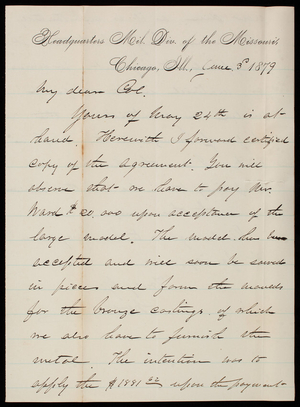 Headquarters Mil. Div. of the Missouri,
Chicago, Ill., June 3d 1879
My dear Col.
Yours of May 24th is at
hand. Herewith I forward certified
copy of the agreement. You will
observe that we have to pay Mr.
Ward $20,000 upon acceptance of the
large model. The model has been
accepted and will soon be sawed
in pieces and form the moulds
for the bronze castings, of which
we also have to furnish the
metal. The intention was to
apply the $1881.22 upon the payment